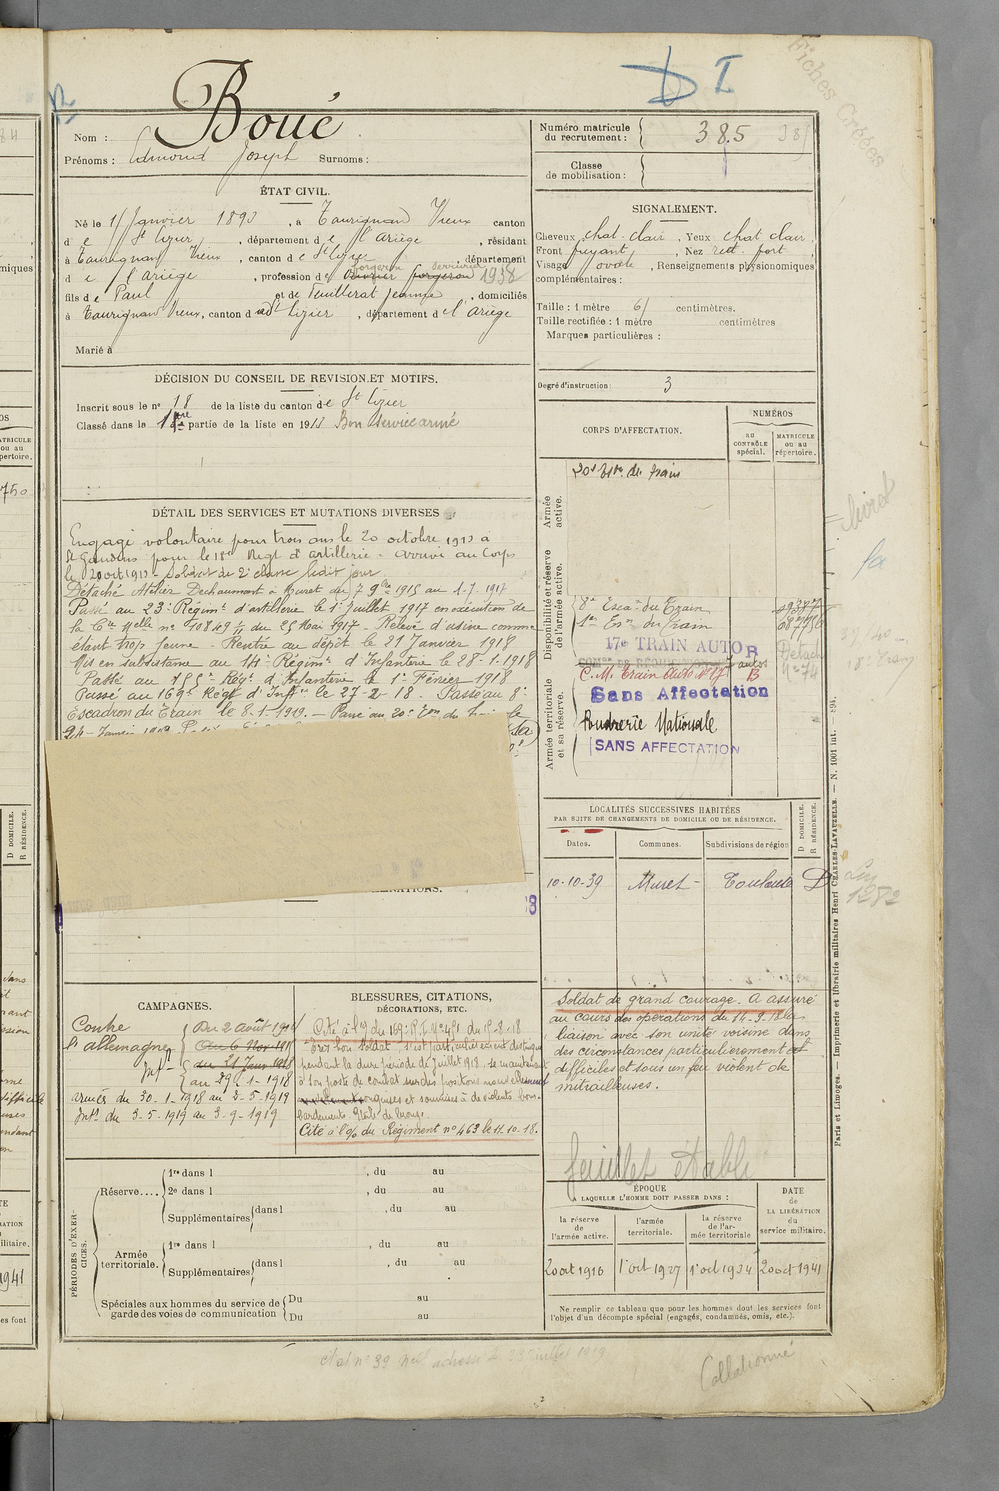 D I
Fiches Créées
Boué
Nom :
Prénoms : Edmond Joseph Surnoms :
Numéro matricule du recrutement : 385
Classe de mobilisation :
ÉTAT CIVIL.
Né le 1er Janvier 1893, à Taurignan Vieux canton
de St Lizier, département de l'Ariège, résidant
à Taurignan Vieux, canton de St Lizier, département
de l'Ariège, profession de forgeron 1938
fils de Paul et de Feuillerat Jeanne, domiciliés
à Taurignan Vieux, canton de St Lizier, département de l'Ariège
Marié à
SIGNALEMENT.
Cheveux chat. clair, Yeux chat clair,
Front fuyant, Nez rect. fort
Visage ovale, Renseignements physionomiques
complémentaires :
Taille : 1 mètre 61 centimètres.
Taille rectifiée : 1 mètre centimètres
Marques particulières :
Degré d'instruction : 3
DÉCISION DU CONSEIL DE REVISION ET MOTIFS.
Inscrit sous le n° 18 de la liste du canton de St Lizier
Classé dans la 1re partie de la liste en 1913 Bon service armé
DÉTAIL DES SERVICES ET MUTATIONS DIVERSES
Engagé volontaire pour trois ans le 20 octobre 1913 à
St Gaudens pour le 18e Regt d'artillerie - arrivé au Corps
le 20 oct 1913 - soldat de 2e classe ledit jour
Détaché Atelier Dechaumont à Muret du 7 9bre 1915 au 1-7-1917
Passé au 23e Régimt d'artillerie le 1er Juillet 1917 en exécution de
la Cre Mlle n° 10849 du 25 Mai 1917 - Relevé d'usine comme
étant trop jeune - Rentré au dépôt le 21 Janvier 1918
Mis en subsistance au 14e Régimt d'Infanterie le 28-1-1918
Passé au 155e Régt d'Infanterie le 1er Février 1918
Passé au 169e Régt d'Inftie le 27-2-18. Passé au 8e
Escadron du Train le 8-1-1919. - Passé au 20e Eon du train le
CORPS D'AFFECTATION.
NUMÉROS
au CONTRÔLE spécial.
MATRICULE ou au répertoire.
Armée active.
Disponibilité et réserve de l'armée active.
Armée territoriale et sa réserve.
20e Esc. du train
8e Escon du Train
1er Eon du Train
17e TRAIN AUTO
C. M. Train Auto N° 17 B
Sans Affectation
Poudrerie Nationale
SANS AFFECTATION
livret
LOCALITÉS SUCCESSIVES HABITÉES
PAR SUITE DE CHANGEMENTS DE DOMICILE OU DE RÉSIDENCE.
Dates.
Communes.
Subdivisions de région
D DOMICILE.
R RÉSIDENCE.
10-10-39 Muret - Toulouse D
1282
CAMPAGNES.
Contre
l'allemagne
Du 2 Août 1914
au 6 Nov 1915
du 21 Janv 1918
au 29-1-1918
armées du 30-1-1918 au 2-5-1919
Intr du 3-5-1919 au 3-9-1919
BLESSURES, CITATIONS,
DÉCORATIONS, ETC.
Cité à l'o/ du 169e R.I. N° 451 du 15-8-18
Très bon soldat s'est particulièrement distingué
pendant la dure période de Juillet 1918 se maintenant
à son poste de combat sur des positions nouvellement
conquises et soumises à de violents bom-
Cité à l'o/ du Régiment n° 463 le 11-10-18.
Soldat de grand courage. A assuré
au cours des opérations du 14-9-18 la
liaison avec son unité voisine dans
des circonstances particulièrement
difficiles et sous un feu violent de
mitrailleuses.
feuillet établi
PÉRIODES D'EXERCICES.
Réserve....
1re dans l , du au
2e dans l , du au
Supplémentaires dans l , du au
Armée territoriale.
1re dans l , du au
Supplémentaires dans l , du au
Spéciales aux hommes du service de garde des voies de communication
Du au
Du au
ÉPOQUE
A LAQUELLE L'HOMME DOIT PASSER DANS :
la réserve de l'armée active.
l'armée territoriale.
la réserve de l'armée territoriale
DATE de LA LIBÉRATION du service militaire.
20 oct 1916
1er oct 1927
1er oct 1934
20 oct 1941
Ne remplir ce tableau que pour les hommes dont les services font
l'objet d'un décompte spécial (engagés, condamnés, omis, etc.).
Collationné
Paris et Limoges. — Imprimerie et librairie militaires Henri CHARLES-LAVAUZELLE. — N. 1001 int.